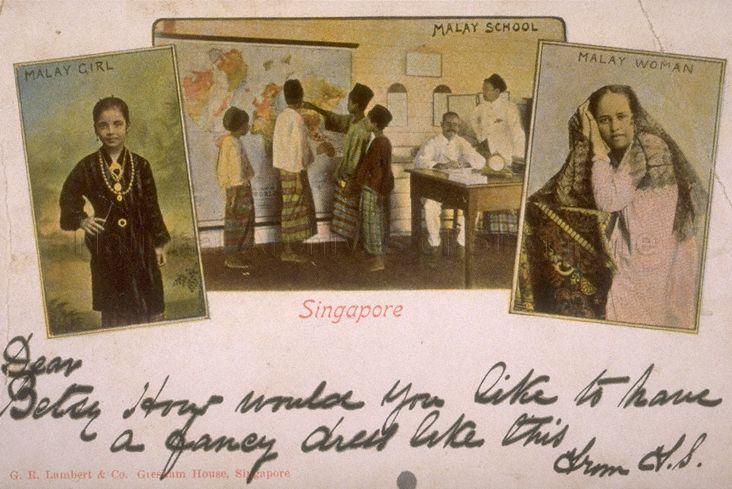 MALAY GIRL
MALAY SCHOOL
MALAY WOMAN
Singapore
Dear
Betsy How would you like to have
a fancy dress like this
from H.S.
G. R. Lambert & Co. Gresham House, Singapore